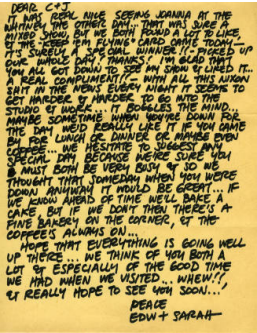 DEAR C+J
IT WAS REAL NICE SEEING JOANNA AT THE
WHITNEY THE OTHER DAY... THAT WAS SURE A
MIXED SHOW, BUT WE BOTH FOUND A LOT TO LIKE
& THE "KEEP 'EM FLYING" CARD CAME TODAY...
IT'S SURELY A SPECIAL WINNER!! - PICKED UP
OUR WHOLE DAY! THANKS! I'M GLAD THAT
YOU ALL GOT DOWN TO SEE MY SHOW & LIKED IT...
A REAL COMPLIMENT!! - WITH ALL THIS NIXON
SHIT IN THE NEWS EVERY NIGHT IT SEEMS TO
GET HARDER & HARDER TO GO INTO THE
STUDIO & WORK... IT BOGGLES THE MIND...
MAYBE SOMETIME WHEN YOU'RE DOWN FOR
THE DAY WE'D REALLY LIKE IT IF YOU CAME
BY FOR LUNCH OR DINNER OR MAYBE EVEN
COFFEE... WE HESITATE TO SUGGEST ANY
SPECIAL DAY BECAUSE WE'RE SURE YOU
MUST BOTH BE VERY BUSY & SO WE
THOUGHT THAT SOMEDAY WHEN YOU WERE
DOWN ANYWAY IT WOULD BE GREAT... IF
WE KNOW AHEAD OF TIME WE'LL BAKE A
CAKE, BUT IF WE DON'T THEN THERE'S A
FINE BAKERY ON THE CORNER, & THE
COFFEE'S ALWAYS ON...
HOPE THAT EVERYTHING IS GOING WELL
UP THERE... WE THINK OF YOU BOTH A
LOT & ESPECIALLY OF THE GOOD TIME
WE HAD WHEN WE VISITED... WHEW!!
& REALLY HOPE TO SEE YOU SOON...!
PEACE
EDW + SARAH